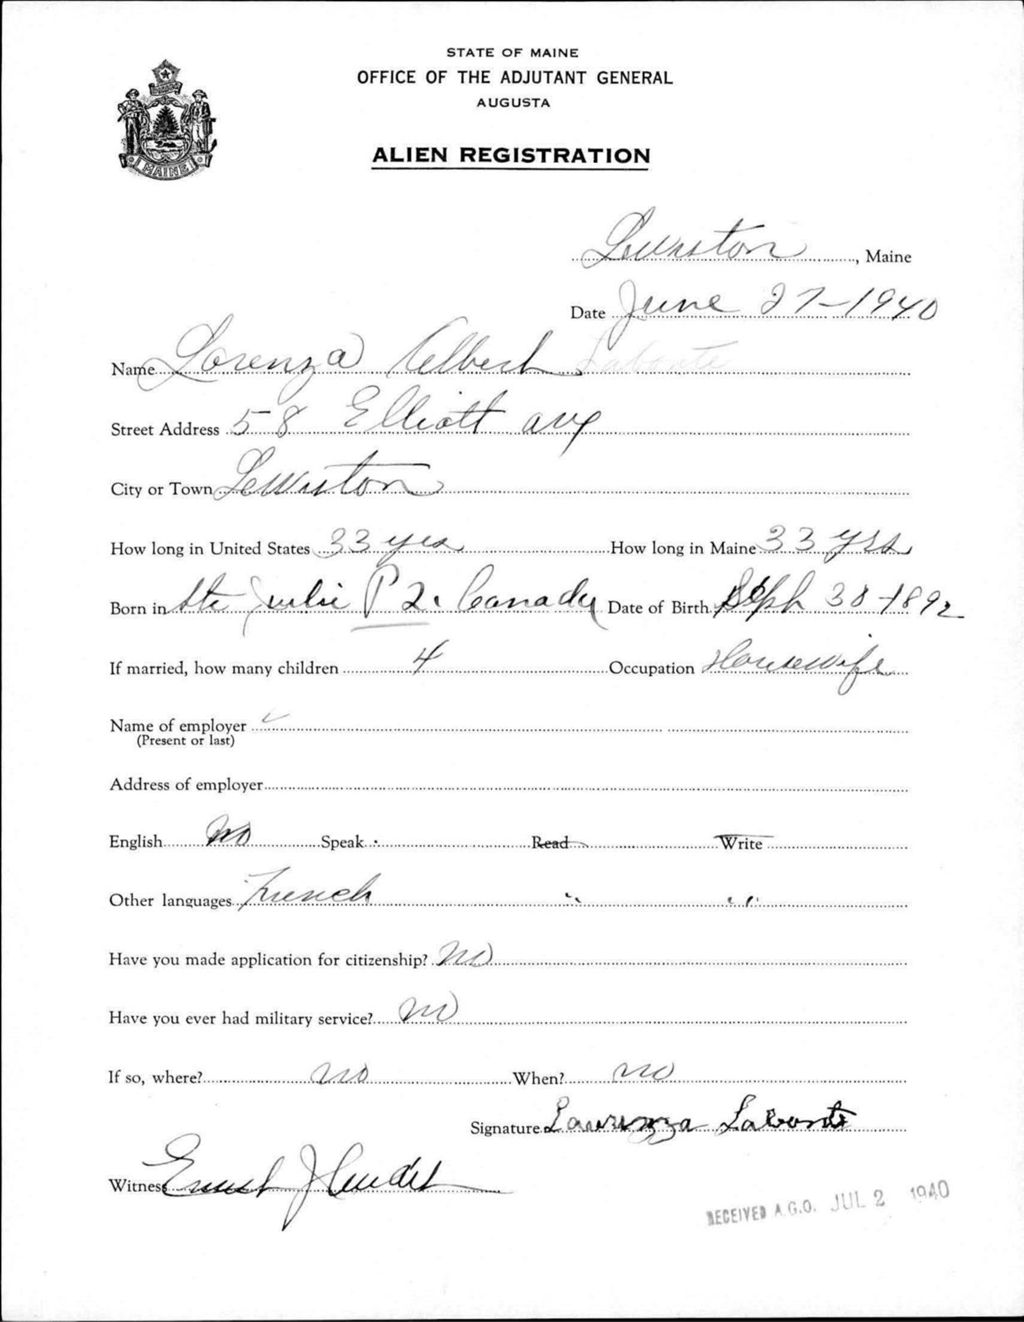 STATE OF MAINE
OFFICE OF THE ADJUTANT GENERAL
AUGUSTA
ALIEN REGISTRATION
MAINE
Lewiston, Maine
Date June 27-1940
Name Lorenza Albert Labonte
Street Address 58 Elliott ave
City or Town Lewiston
How long in United States 33 yrs How long in Maine 33 yrs
Born in Ste Julie P Q. Canada Date of Birth Sept 30-1892
If married, how many children 4 Occupation Housewife
Name of employer
(Present or last)
Address of employer
English No Speak Read Write
Other languages French " "
Have you made application for citizenship? No
Have you ever had military service? No
If so, where? no When? no
Signature Laurenza Labonte
Witness
RECEIVED A.G.O. JUL 2 1940